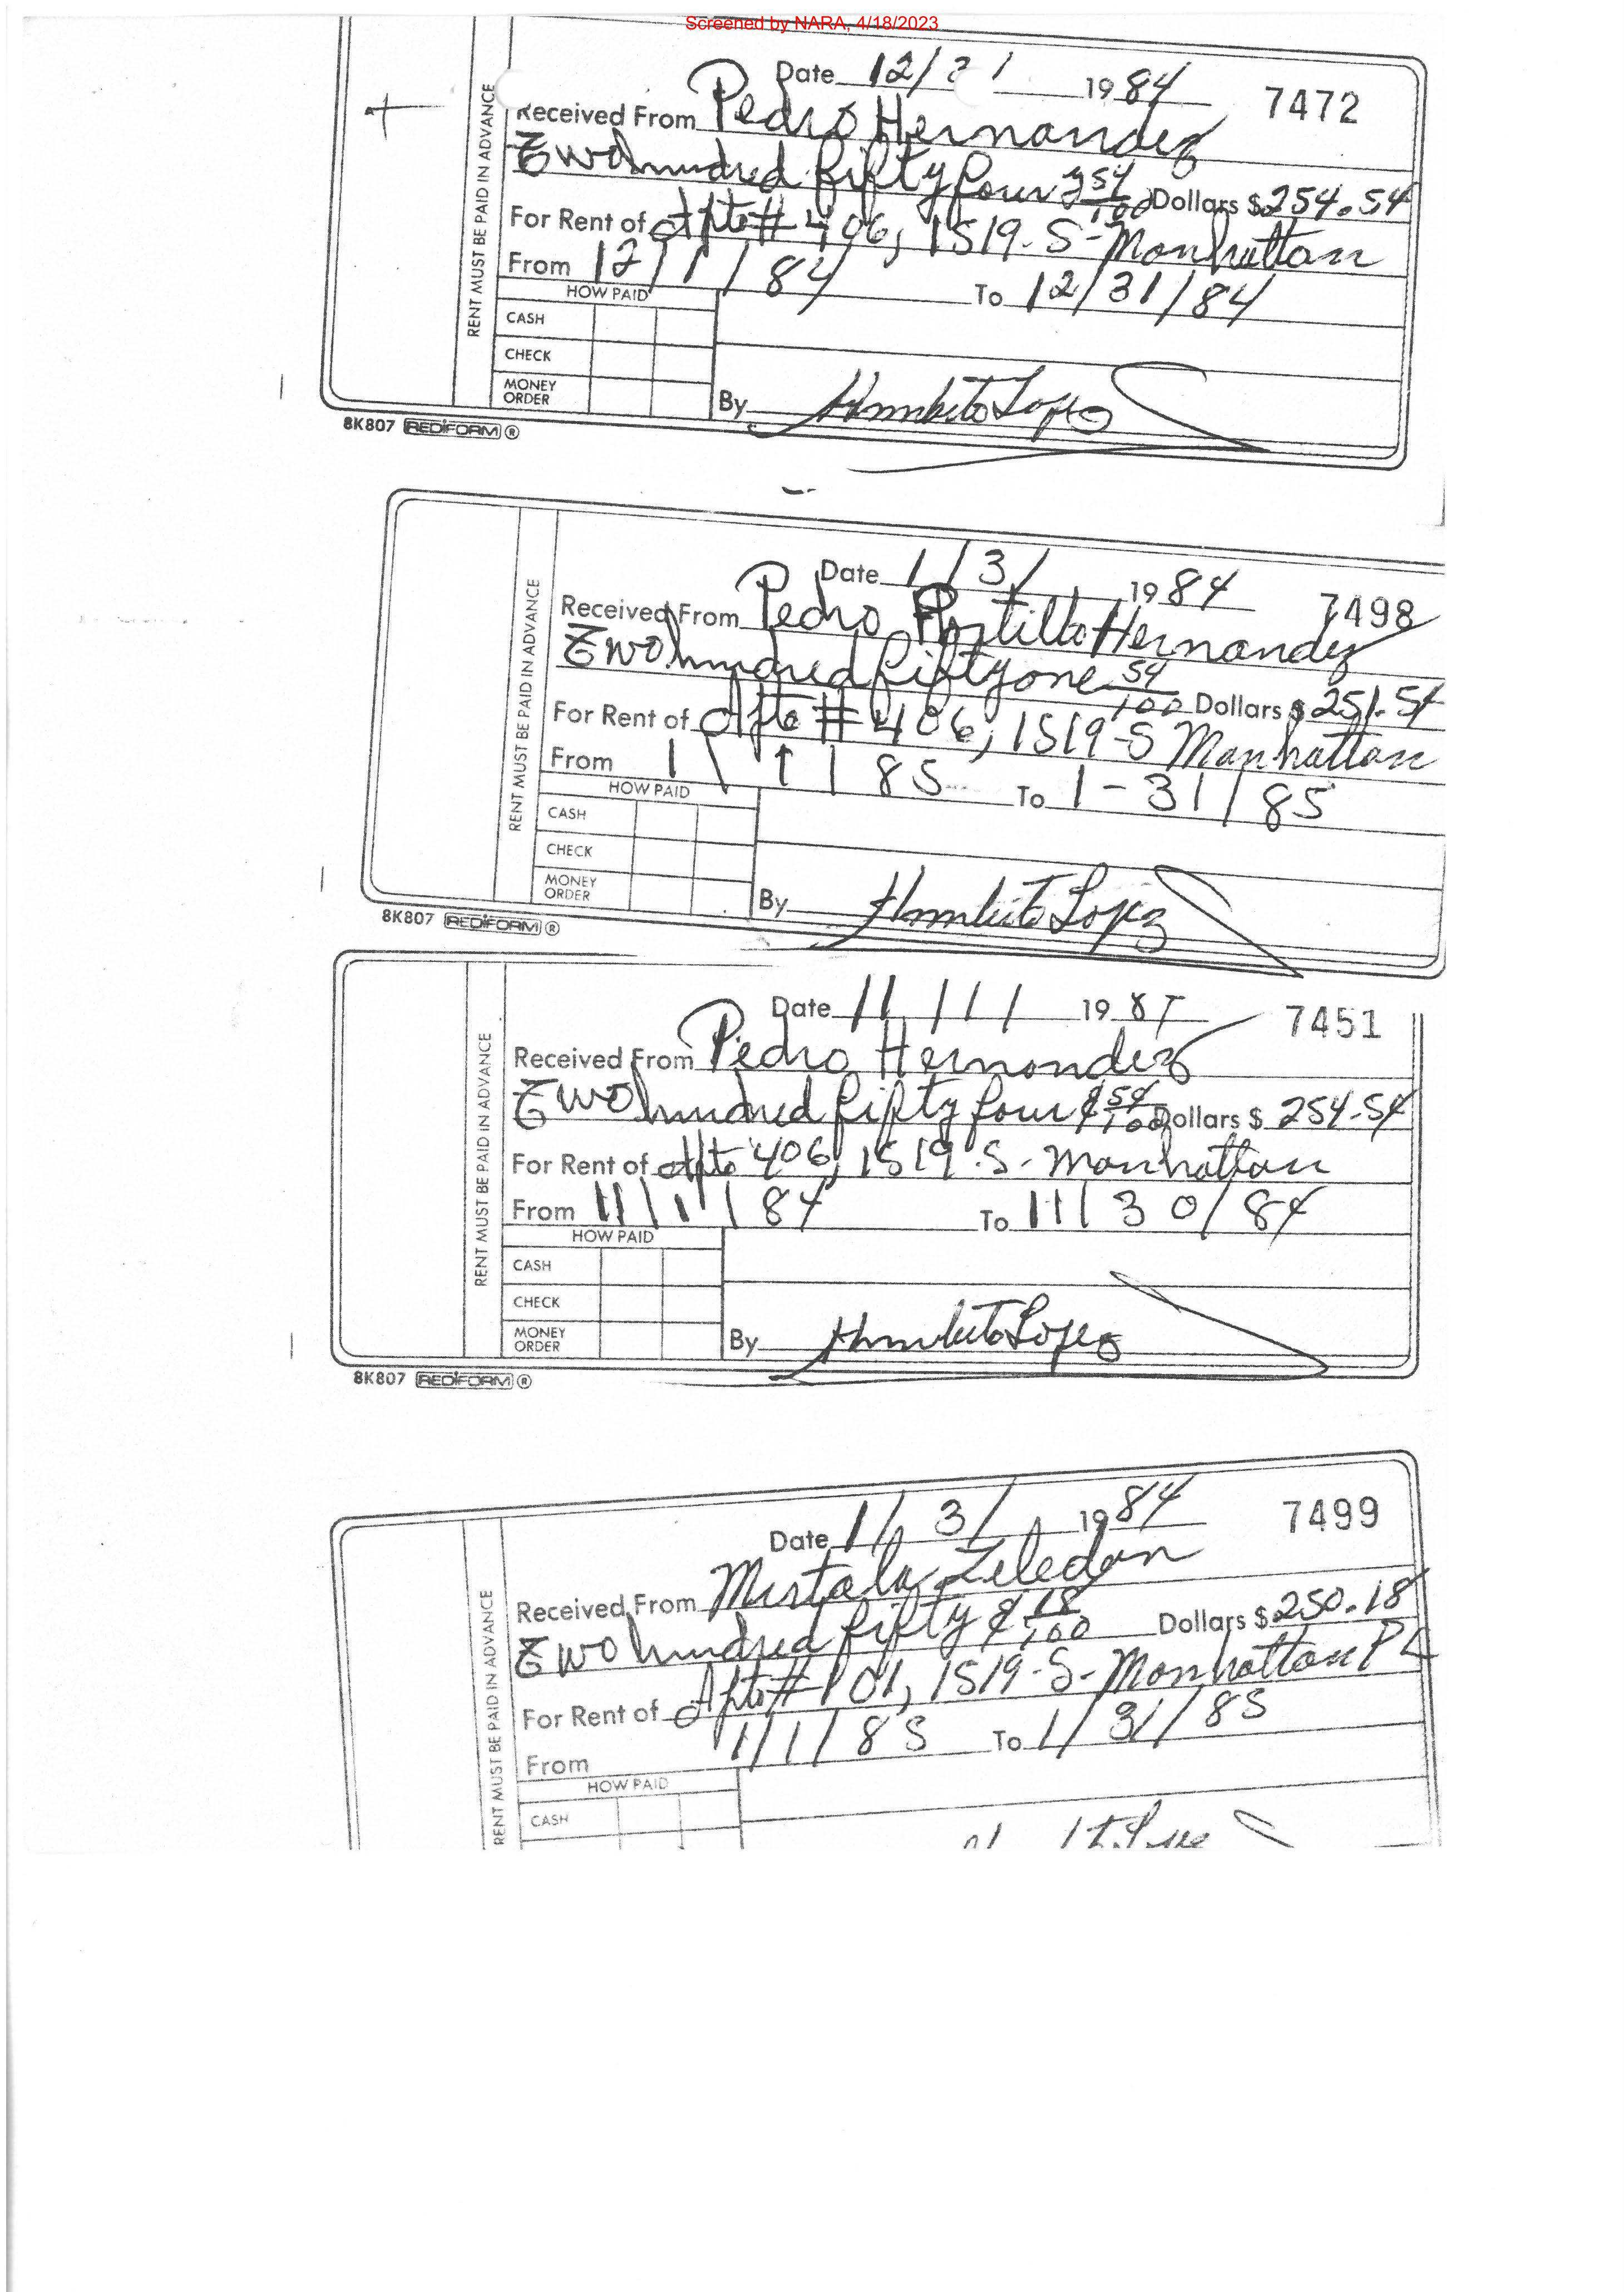 Screened by NARA, 4/18/2023
Date 12/ 1 1984 7472
RENT MUST BE PAID IN ADVANCE
Received From Pedro Hernandez
Two hundred fifty four & 54/100 Dollars $ 254.54
For Rent of Apto # 406, 1519-S-Manhattan
From 12/1/84 To 12/31/84
HOW PAID
CASH
CHECK
MONEY ORDER
By Humberto Lopez
8K807 REDIFORM ®
Date 1/3/ 1984 7498
RENT MUST BE PAID IN ADVANCE
Received From Pedro Portillo Hernandez
Two hundred fifty one 54/100 Dollars $ 251.54
For Rent of Apto # 406, 1519-S Manhattan
From 1/1/85 To 1-31/85
HOW PAID
CASH
CHECK
MONEY ORDER
By Humberto Lopez
8K807 REDIFORM ®
Date 11/1/ 198 7451
RENT MUST BE PAID IN ADVANCE
Received From Pedro Hernandez
Two hundred fifty four & 54/100 Dollars $ 254.54
For Rent of Apto 406, 1519-S-Manhattan
From 11/1/84 To 11/30/84
HOW PAID
CASH
CHECK
MONEY ORDER
By Humberto Lopez
8K807 REDIFORM ®
Date 1/3/ 1984 7499
RENT MUST BE PAID IN ADVANCE
Received From Zeledon
Two hundred fifty & 18/100 Dollars $ 250.18
For Rent of Apto # 101, 1519-S-Manhattan PL
From 1/1/85 To 1/31/85
HOW PAID
CASH